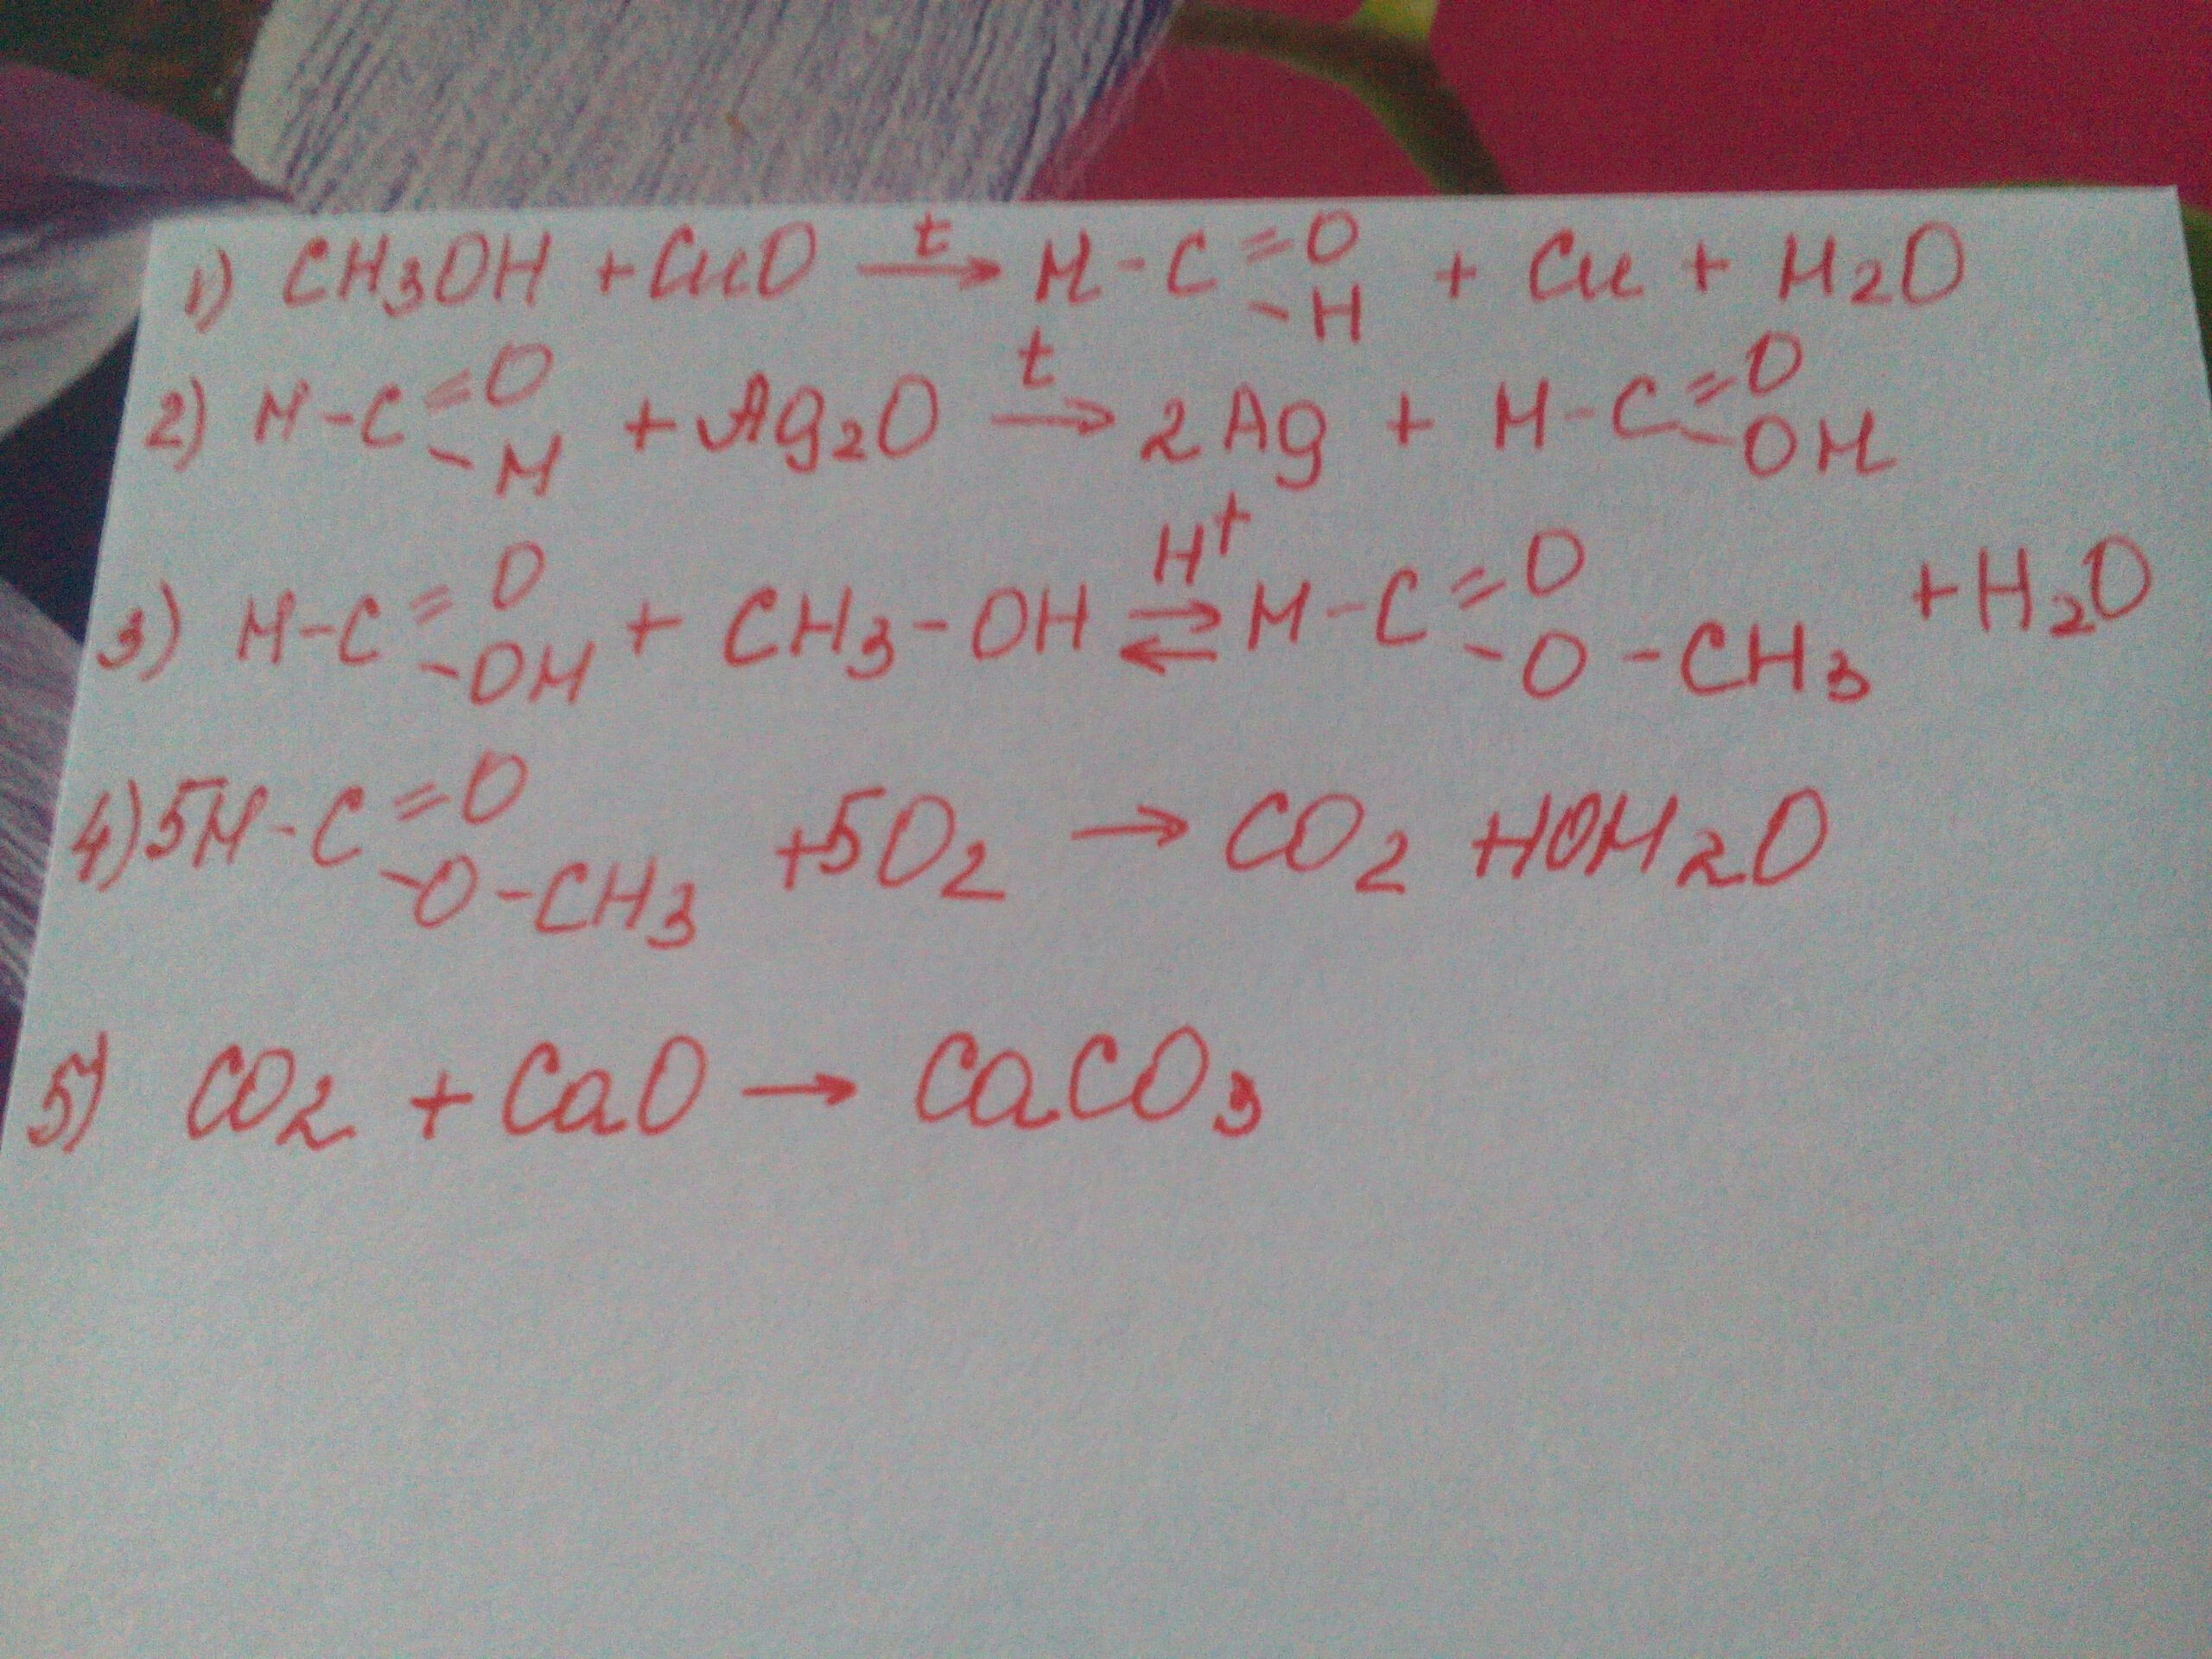 1) CH3OH + CuO t→ H-C=O-H + Cu + H2O
2) H-C=O-H + Ag2O t→ 2Ag + H-C=O-OH
3) H-C=O-OH + CH3-OH H+⇄ H-C=O-O-CH3 + H2O
4) 5H-C=O-O-CH3 + 5O2 → CO2 + HOH2O
5) CO2 + CaO → CaCO3